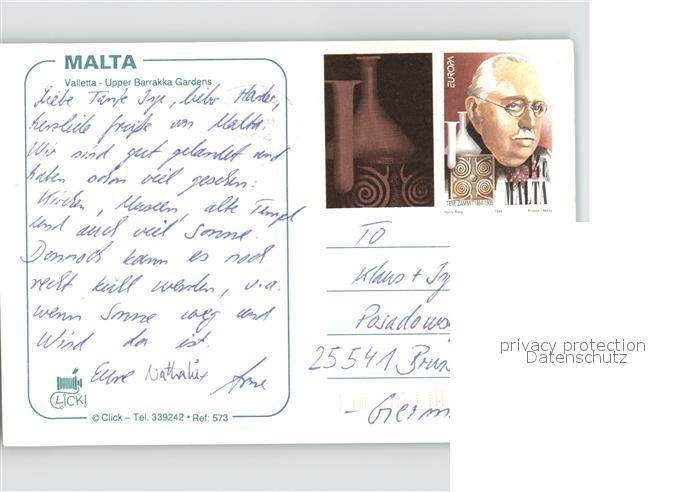 MALTA
Valletta - Upper Barrakka Gardens
Liebe Tante Inge, lieber
herzliche Grüße von Malta.
Wir sind gut gelandet und
haben schon viel gesehen:
Kirchen, Museen, alte Tempel
und auch viel Sonne.
Dennoch kann es noch
recht kühl werden, v.a.
wenn Sonne weg und
Wind da ist.
Eure Nathalie
CLICK!
© Click – Tel. 339242 • Ref: 573
EUROPA
MALTA
TEMI ZAMMIT 1864-1935
Harry Borg 1994 Printex - Malta
TO
Klaus + In
Posadows
25541 Bruns
- Germ
privacy protection
Datenschutz